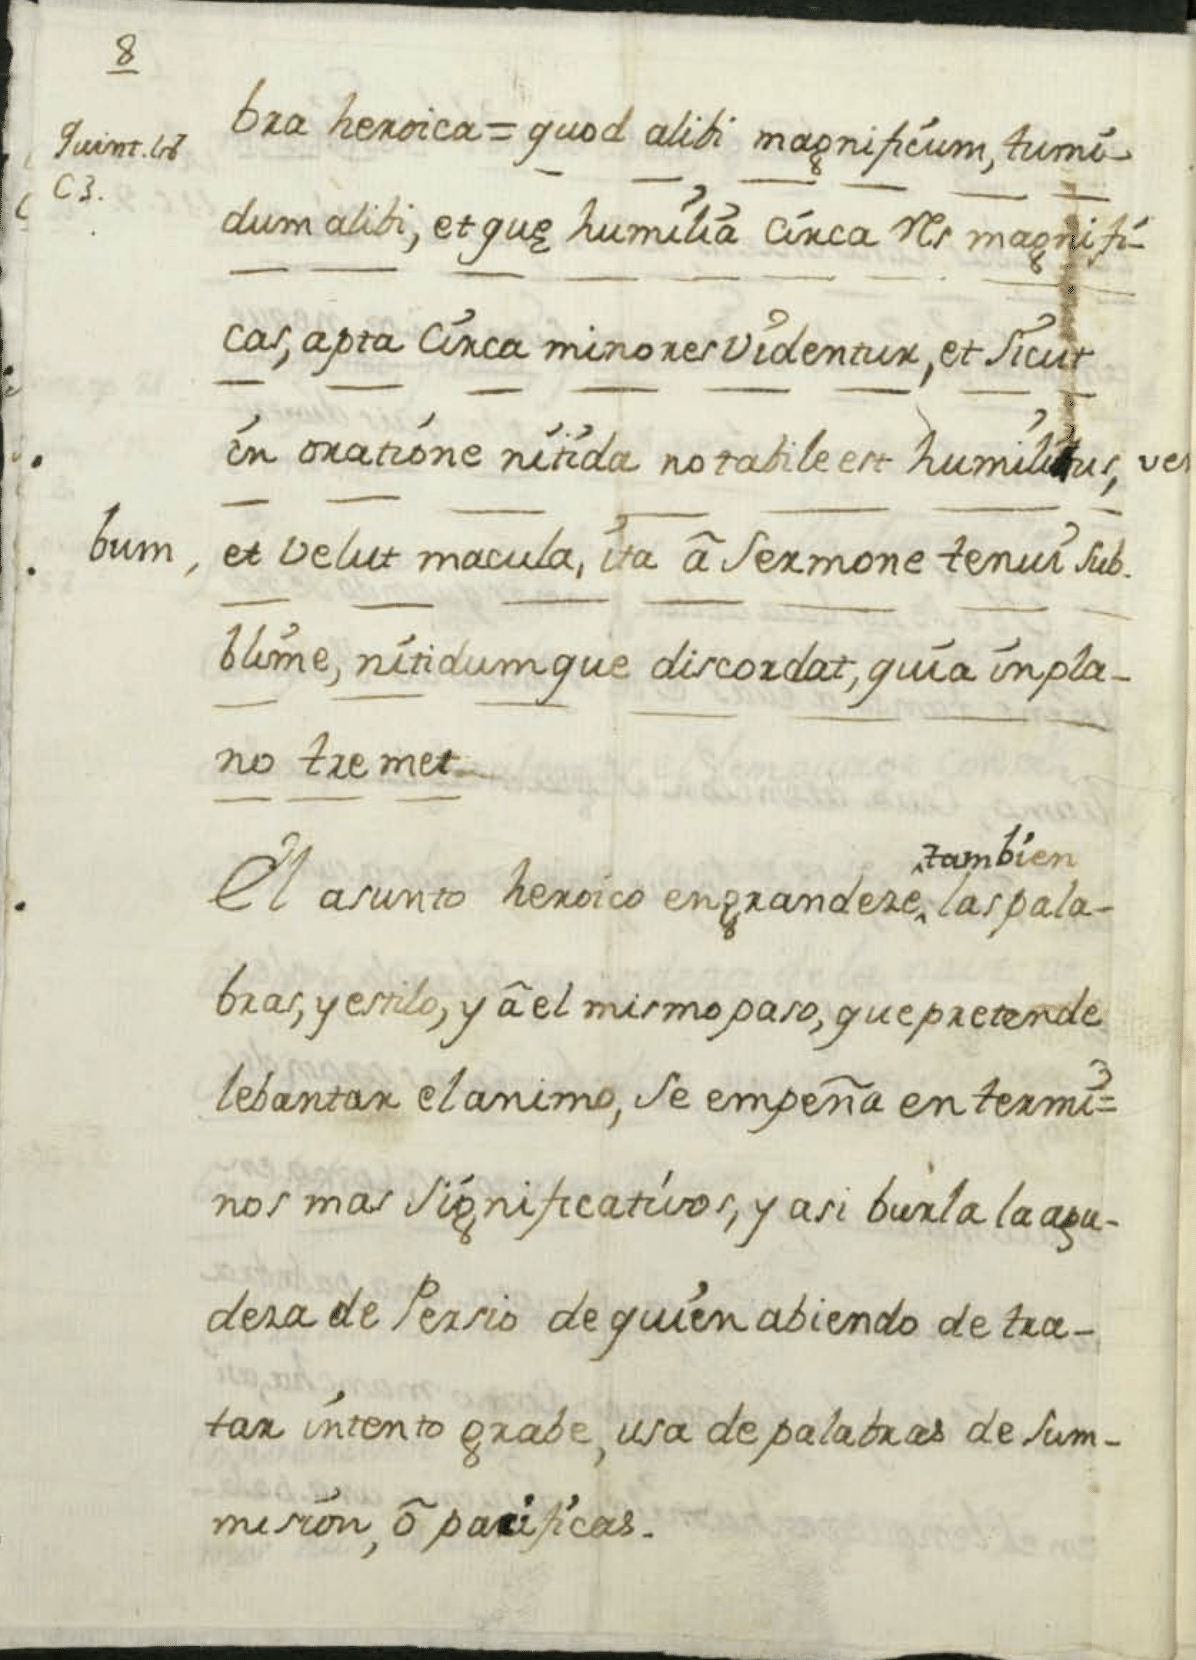 8
Quint. lib 8
C 3.
bra heroica = quod alibi magnificum, tumi-
dum alibi, et quę humilia Circa res magnifi-
cas, apta Circa minores videntur, et Sicut
in oratione nitida notabile est humilius, ver
bum, et velut macula, ita â Sermone tenui Sub.
blime, nitidumque discordat, quia in pla-
no tremet
El asunto heroico engrandeze, también las pala-
bras, y estilo, y â el mismo paso, que pretende
lebantar el animo, Se empeña en termi=
nos mas Significativos, y asi burla la agu-
deza de Persio de quien abiendo de tra-
tar intento grabe, usa de palabras de Sum-
mision, ô pacificas.